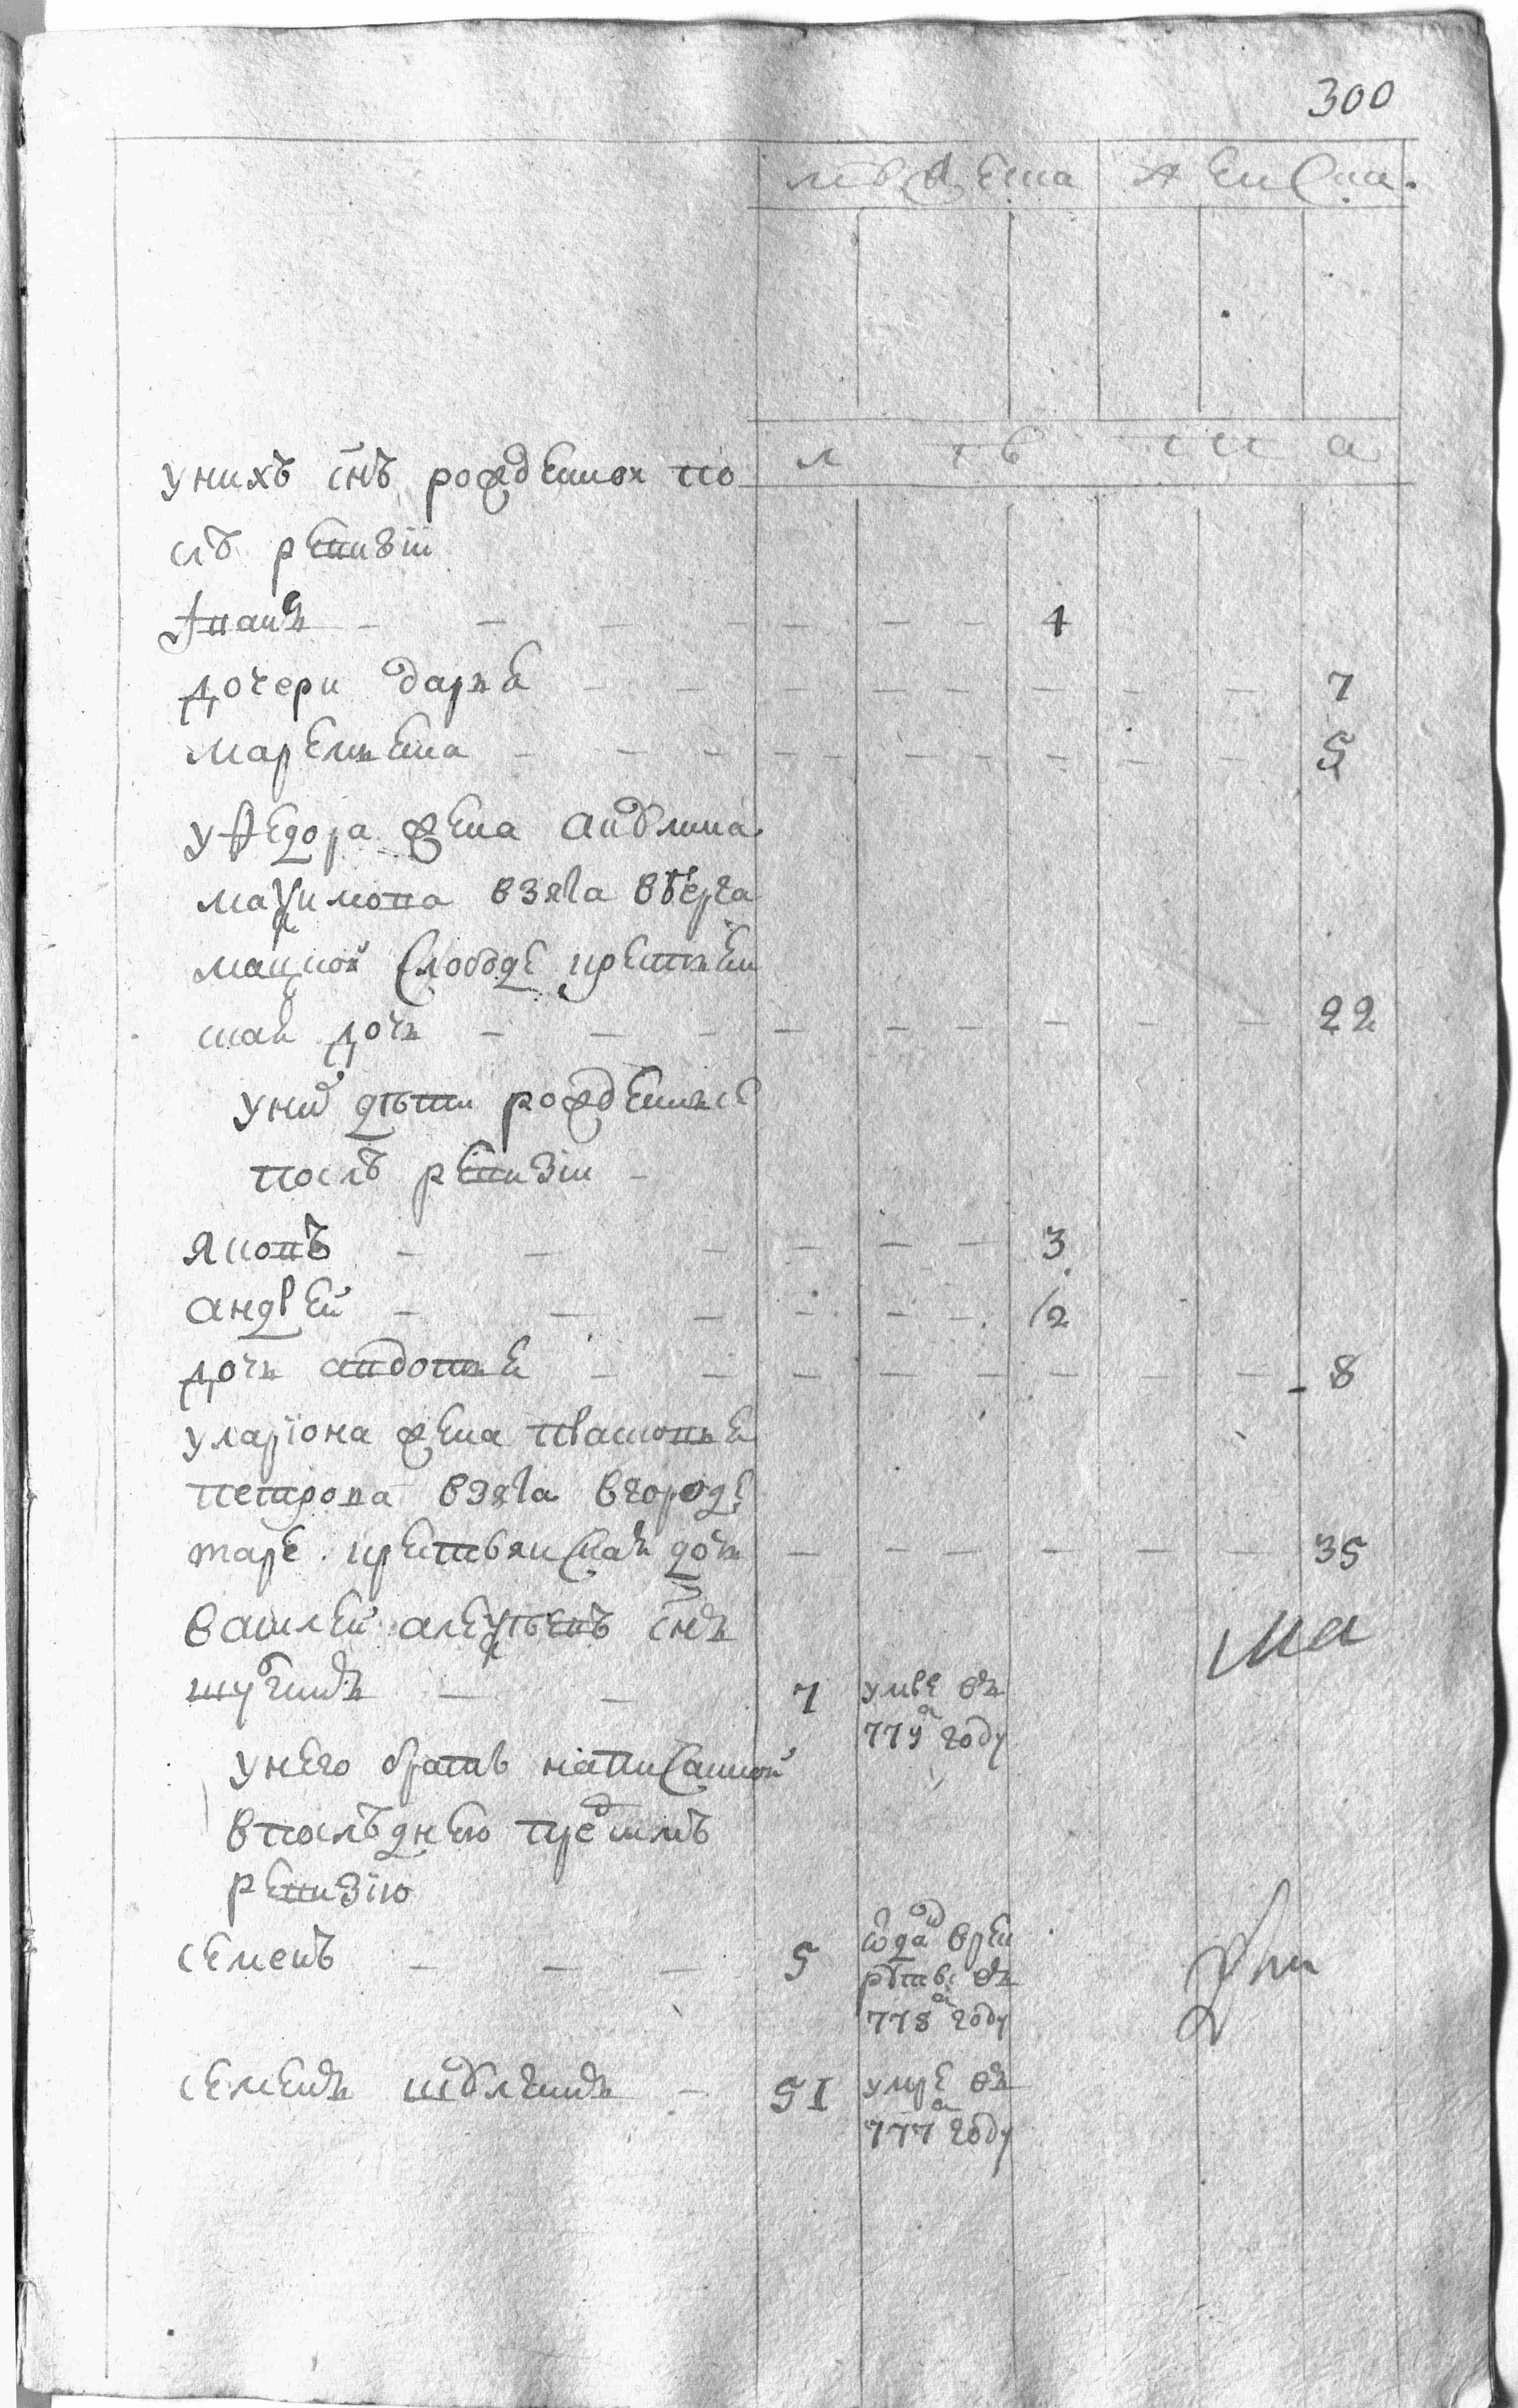 300
мужеска женска
лѣта
У нихъ сн҃ъ рожденной по
слѣ ревизіи
Иванъ 1
дочери Дарья 7
Маремьяна 5
У Федора жена Акулина
Максимова взята в Верха
мацкой слободе крестьян
ская дочь 22
У них дѣти рожденные
послѣ ревизіи
Яковъ 3
Андрей 1/2
дочь Авдотья 8
У Лариона жена Прасковья
Петрова взята в городе
Таре крестьянская дочь 35
Василей Алексѣевъ сн҃ъ
7 умре въ
779м году
У него братъ написанной
в последнею пред симъ
ревизію
Семенъ 5 ѿдан в рек
руты въ
778м году
Семенъ 51 умре въ
777м году